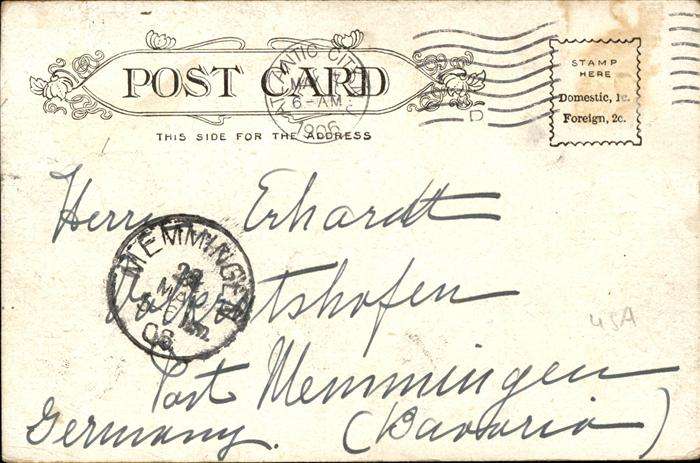 POST CARD
ATLANTIC CITY
6-AM
1906
D
STAMP
HERE
Domestic, 1c.
Foreign, 2c.
THIS SIDE FOR THE ADDRESS
Herrn Erhardt
MEMMINGEN
MAI
06
Post Memmingen
Germany. (Bavaria)
USA